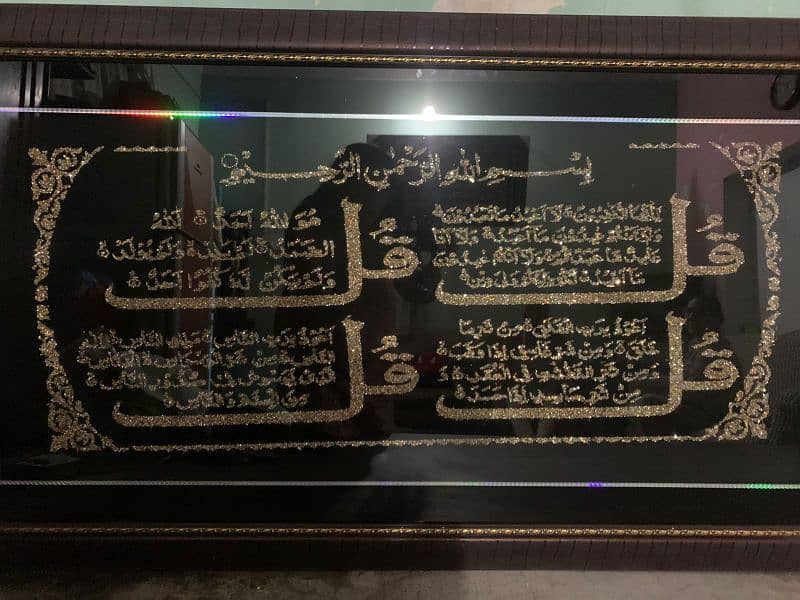 بِسْمِ اللهِ الرَّحْمٰنِ الرَّحِيْمِ
قُلْ
يٰٓاَيُّهَا الْكٰفِرُوْنَ لَا اَعْبُدُ مَا تَعْبُدُوْنَ
وَلَا اَنْتُمْ عٰبِدُوْنَ مَا اَعْبُدُ وَلَا اَنَا
عَابِدٌ مَّا عَبَدْتُّمْ وَلَا اَنْتُمْ عٰبِدُوْنَ
مَا اَعْبُدُ لَكُمْ دِيْنُكُمْ وَلِيَ دِيْنِ
قُلْ
هُوَ اللهُ اَحَدٌ اَللهُ
الصَّمَدُ لَمْ يَلِدْ وَلَمْ يُوْلَدْ
وَلَمْ يَكُنْ لَّهٗ كُفُوًا اَحَدٌ
قُلْ
اَعُوْذُ بِرَبِّ الْفَلَقِ مِنْ شَرِّ مَا
خَلَقَ وَمِنْ شَرِّ غَاسِقٍ اِذَا وَقَبَ
وَمِنْ شَرِّ النَّفّٰثٰتِ فِى الْعُقَدِ وَ
مِنْ شَرِّ حَاسِدٍ اِذَا حَسَدَ
قُلْ
اَعُوْذُ بِرَبِّ النَّاسِ مَلِكِ النَّاسِ اِلٰهِ
النَّاسِ مِنْ شَرِّ الْوَسْوَاسِ الْخَنَّاسِ
الَّذِيْ يُوَسْوِسُ فِيْ صُدُوْرِ النَّاسِ
مِنَ الْجِنَّةِ وَالنَّاسِ